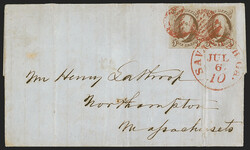 SAV
GA.
JUL
6
10
Mr Henry Lathrop
Northampton
Massachusetts